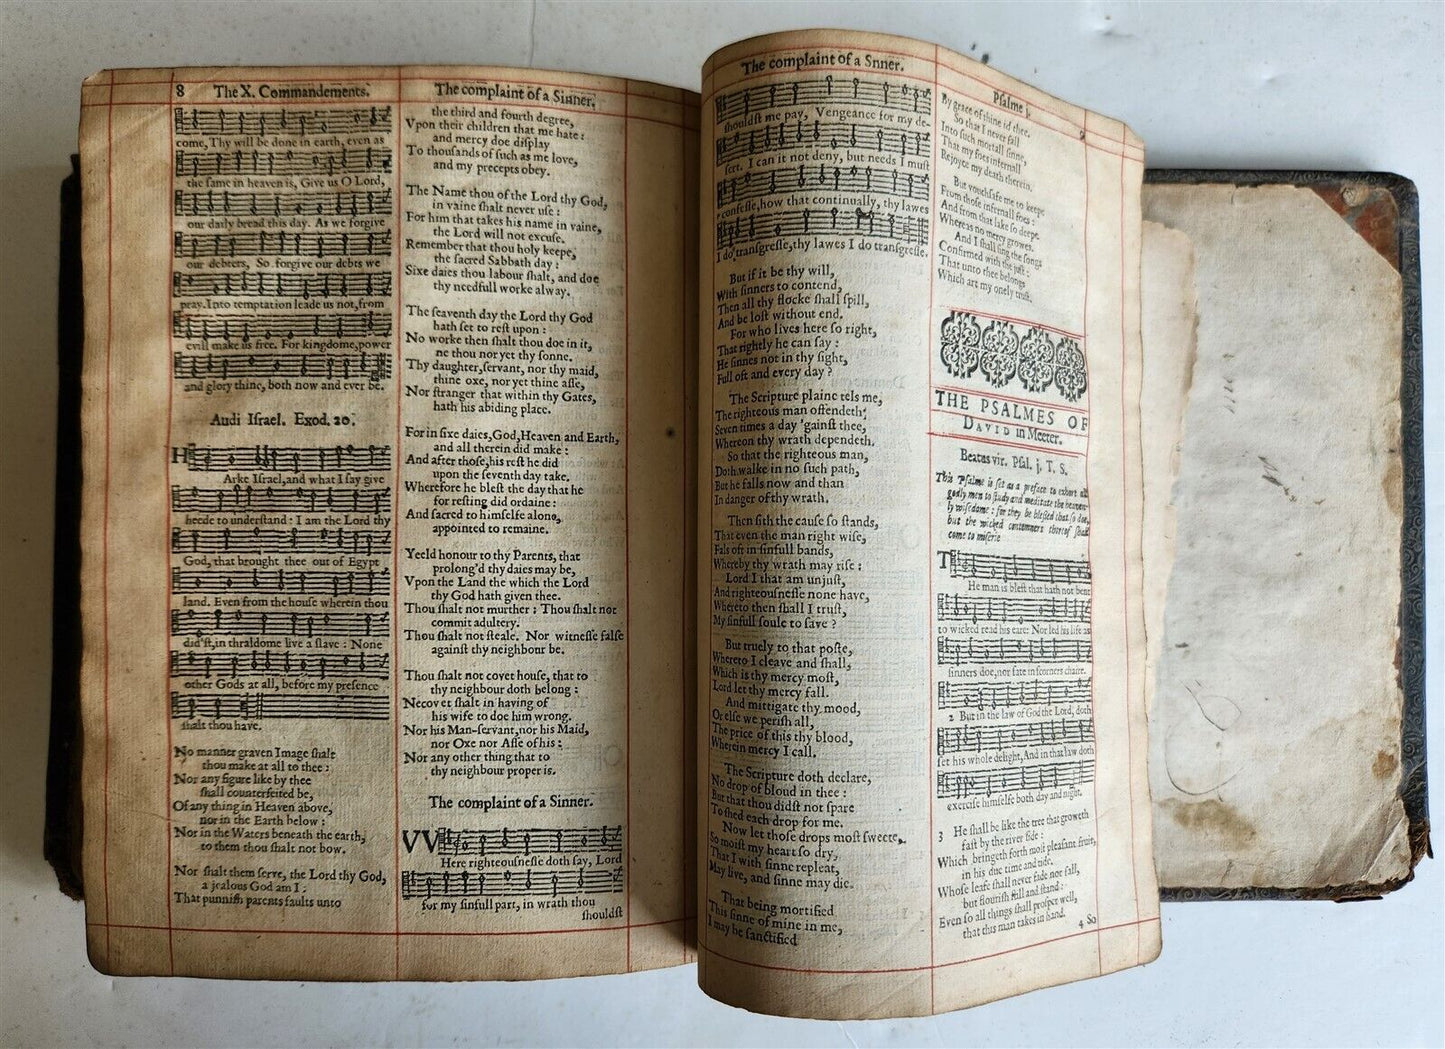 8 The X. Commandements. The complaint of a Sinner.
come, Thy will be done in earth, even as
the ſame in heaven is, Give us O Lord,
our daily bread this day. As we forgive
our debters, So forgive our debts we
pray. Into temptation leade us not, from
evill make us free. For kingdome, power
and glory thine, both now and ever be.
Audi Iſrael. Exod. 20.
HArke Israel, and what I ſay give
heede to underſtand: I am the Lord thy
God, that brought thee out of Egypt
land. Even from the houſe wherein thou
did'ſt, in thraldome live a ſlave: None
other Gods at all, before my preſence
ſhalt thou have.
No manner graven Image ſhalt
thou make at all to thee:
Nor any figure like by thee
ſhall counterfeited be,
Of any thing in Heaven above,
nor in the Earth below:
Nor in the Waters beneath the earth,
to them thou ſhalt not bow.
Nor ſhalt them ſerve, the Lord thy God,
a jealous God am I:
That puniſh parents faults unto
the third and fourth degree,
Vpon their children that me hate:
and mercy doe diſplay
To thouſands of ſuch as me love,
and my precepts obey.
The Name thou of the Lord thy God,
in vaine ſhalt never uſe:
For him that takes his name in vaine,
the Lord will not excuſe.
Remember that thou holy keepe,
the ſacred Sabbath day:
Sixe daies thou labour ſhalt, and doe
thy needfull worke alway.
The ſeaventh day the Lord thy God
hath ſet to reſt upon:
No worke then ſhalt thou doe in it,
ne thou nor yet thy ſonne.
Thy daughter, ſervant, nor thy maid,
thine oxe, nor yet thine aſſe,
Nor ſtranger that within thy Gates,
hath his abiding place.
For in ſixe daies, God, Heaven and Earth,
and all therein did make:
And after thoſe, his reſt he did
upon the ſeventh day take.
Wherefore he bleſt the day that he
for reſting did ordaine:
And ſacred to himſelfe alone,
appointed to remaine.
Yeeld honour to thy Parents, that
prolong'd thy daies may be,
Vpon the Land the which the Lord
thy God hath given thee.
Thou ſhalt not murther: Thou ſhalt not
commit adultery.
Thou ſhalt not ſteale. Nor witneſſe falſe
againſt thy neighbour be.
Thou ſhalt not covet houſe, that to
thy neighbour doth belong:
Ne covet ſhalt in having of
his wife to doe him wrong.
Nor his Man-ſervant, nor his Maid,
nor Oxe nor Aſſe of his:
Nor any other thing that to
thy neighbour proper is.
The complaint of a Sinner.
VVHere righteouſneſſe doth ſay, Lord
for my ſinfull part, in wrath thou
ſhouldſt
The complaint of a Snner. Pſalme j. 9
ſhouldſt me pay, Vengeance for my de-
ſert. I can it not deny, but needs I muſt
confeſſe, how that continually, thy lawes
I do tranſgreſſe, thy lawes I do tranſgreſſe.
But if it be thy will,
With ſinners to contend,
Then all thy flocke ſhall ſpill,
And be loſt without end.
For who lives here ſo right,
That rightly he can ſay:
He ſinnes not in thy ſight,
Full oft and every day?
The Scripture plaine tels me,
The righteous man offendeth:
Seven times a day 'gainſt thee,
Whereon thy wrath dependeth.
So that the righteous man,
Doth walke in no ſuch path,
But he falls now and than
In danger of thy wrath.
Then ſith the cauſe ſo ſtands,
That even the man right wiſe,
Fals oft in ſinfull bands,
Whereby thy wrath may riſe:
Lord I that am unjuſt,
And righteouſneſſe none have,
Whereto then ſhall I truſt,
My ſinfull ſoule to ſave?
But truely to that poſte,
Whereto I cleave and ſhall,
Which is thy mercy moſt,
Lord let thy mercy fall.
And mittigate thy mood,
Or elſe we periſh all,
The price of this thy blood,
Wherein mercy I call.
The Scripture doth declare,
No drop of bloud in thee:
But that thou didſt not ſpare
To ſhed each drop for me.
Now let thoſe drops moſt ſweete,
So moiſt my heart ſo dry,
That I with ſinne repleat,
May live, and ſinne may die.
That being mortified
This ſinne of mine in me,
I may be ſanctified
By grace of thine in thee.
So that I never fall
Into ſuch mortall ſinne,
That my foes infernall
Rejoyce my death therein.
But vouchſafe me to keepe
From thoſe infernall foes:
And from that lake ſo deepe
Whereas no mercy growes.
And I ſhall ſing the ſongs
Confirmed with the juſt:
That unto thee belongs
Which art my onely truſt.
THE PSALMES OF
DAVID in Meeter.
Beatus vir. Pſal. j. T. S.
This Pſalme is ſet as a preface to exhort all
godly men to ſtudy and meditate the heaven-
ly wiſedome: for they be bleſſed that ſo doe,
but the wicked contemners thereof ſhall
come to miſerie
THe man is bleſt that hath not bent
to wicked read his eare: Nor led his life as
ſinners doe, nor ſate in ſcorners chaire.
2 But in the law of God the Lord, doth
ſet his whole delight, And in that law doth
exerciſe himſelfe both day and night.
3 He ſhall be like the tree that groweth
faſt by the river ſide:
Which bringeth forth moſt pleaſant fruit,
in his due time and tide.
Whoſe leafe ſhall never fade nor fall,
but flouriſh ſtill and ſtand:
Even ſo all things ſhall proſper well,
that this man takes in hand.
4 So